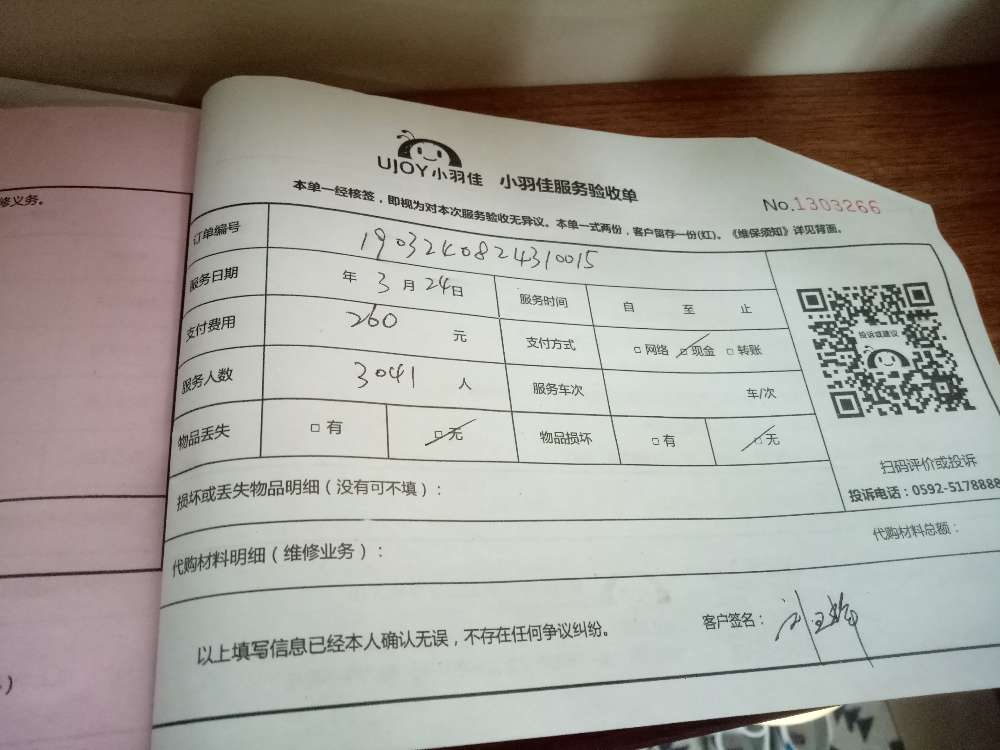 修义务。
UJOY小羽佳 小羽佳服务验收单
No.1303266
本单一经核签，即视为对本次服务验收无异议。本单一式两份，客户留存一份(红)。《维保须知》详见背面。
订单编号 1903240824310015
服务日期 年 3 月 24 日 服务时间 自 至 止
支付费用 260 元 支付方式 □ 网络 □ 现金 □ 转账
服务人数 3041 人 服务车次 车/次
物品丢失 □ 有 □ 无 物品损坏 □ 有 □ 无
投诉或建议
扫码评价或投诉
投诉电话：0592-5178888
损坏或丢失物品明细（没有可不填）：
代购材料明细（维修业务）： 代购材料总额：
以上填写信息已经本人确认无误，不存在任何争议纠纷。 客户签名：